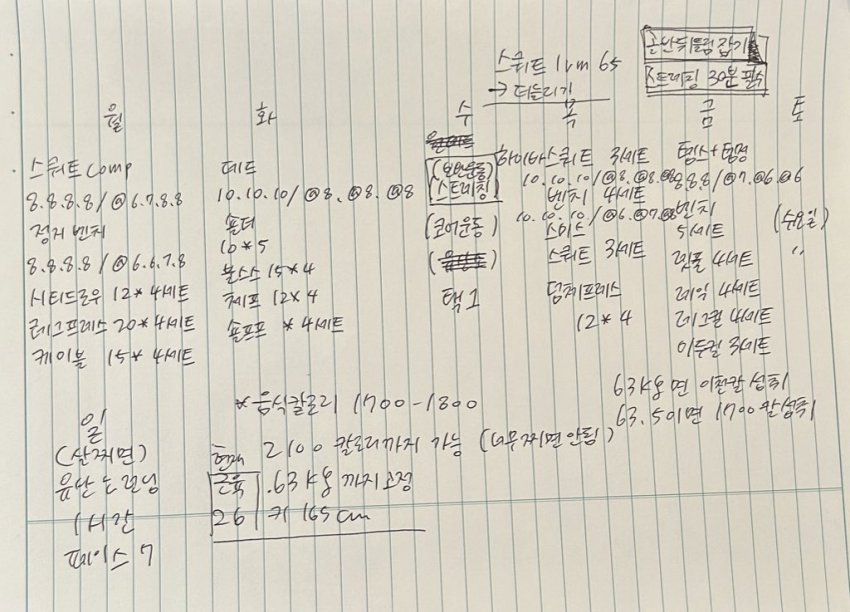 골반뒤틀림 잡기
스트레칭 30분 필수
스쿼트 1rm 65
→ 더늘리기
월 화 수 목 금 토
스쿼트 comp
8.8.8.8/@6.7.8.8
정지 벤치
8.8.8.8/@6.6.7.8
시티드로우 12* 4세트
레그프레스 20* 4세트
케이블 15* 4세트
데드
10.10.10/@8.@8.@8
숄더
10*5
불스스 15*4
체프 12x4
숄프프 *4세트
(보완운동)
(스트레칭)
(코어운동)
택1
하이바 스쿼트 3세트
10.10.10/@8.@8.@8
벤치 4세트
10.10.10/@6.@7.@8
스미스
스쿼트 3세트
덤체프레스
12*4
8.8.8/@7.@6.@6
벤치
5세트
렛풀 4세트
레익 4세트
레그컬 4세트
이두컬 3세트
(수요일)
〃
*음식칼로리 1700-1800
63kg 면 이천칼 섭취
63.5이면 1700칼 섭취
일
(살찌면)
유산소 런닝
1시간
페이스 7
현재 2100 칼로리까지 가능 (너무찌면안됨)
근육 .63kg 까지 고정
26 키 165cm